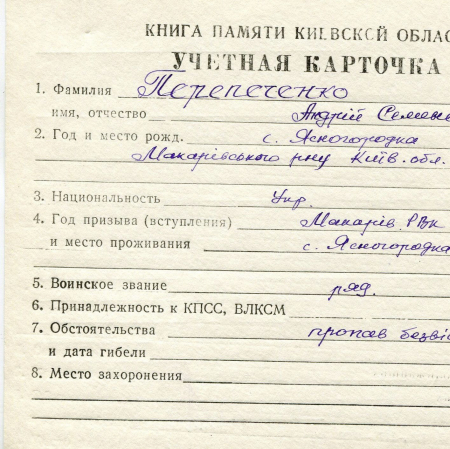 КНИГА ПАМЯТИ КИЕВСКОЙ ОБЛАС
УЧЕТНАЯ КАРТОЧКА
1. Фамилия Перепеченко
имя, отчество Андрій Семено
2. Год и место рожд. с. Ясногородка
Макарівського р-ну Київ. обл.
3. Национальность Укр.
4. Год призыва (вступления) Макарів. РВК
и место проживания с. Ясногородка
5. Воинское звание ряд.
6. Принадлежность к КПСС, ВЛКСМ
7. Обстоятельства пропав безвіс
и дата гибели
8. Место захоронения